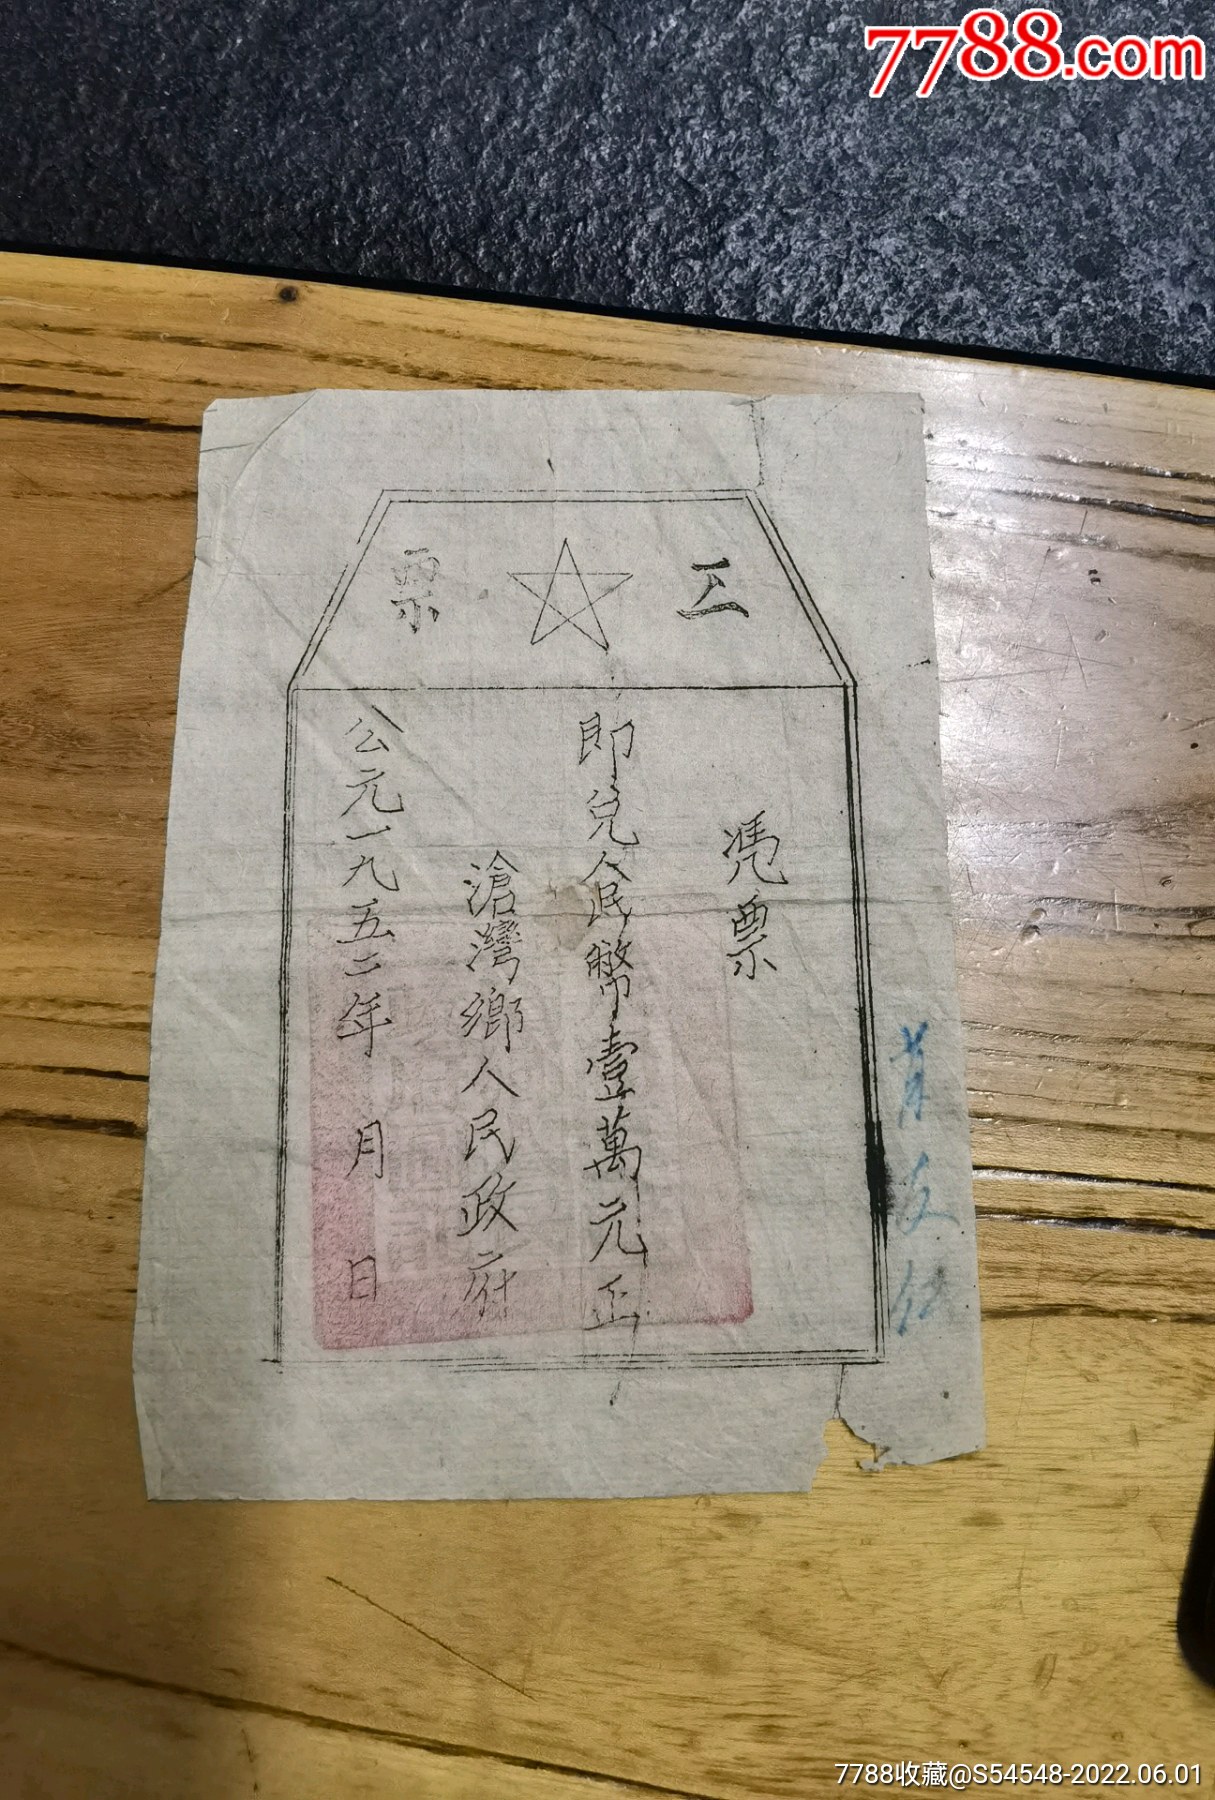 7788.com
工票
憑票
即兑人民幣壹萬元正
滄灣鄉人民政府
公元一九五二年 月 日
7788收藏@S54548-2022.06.01